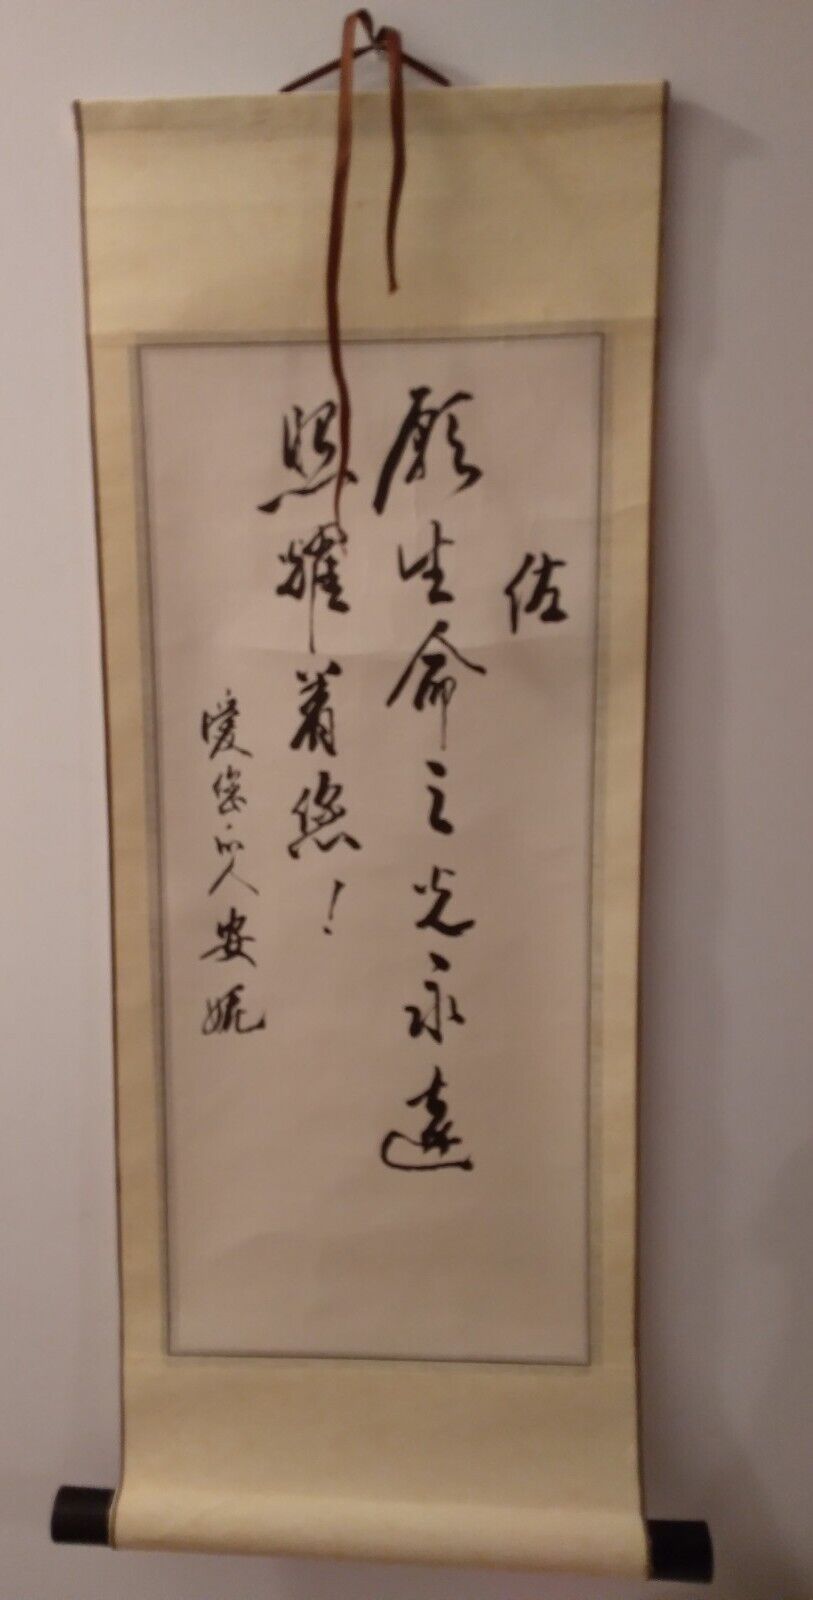 佐
願生命之光永遠
照耀着您！
愛您的人安妮